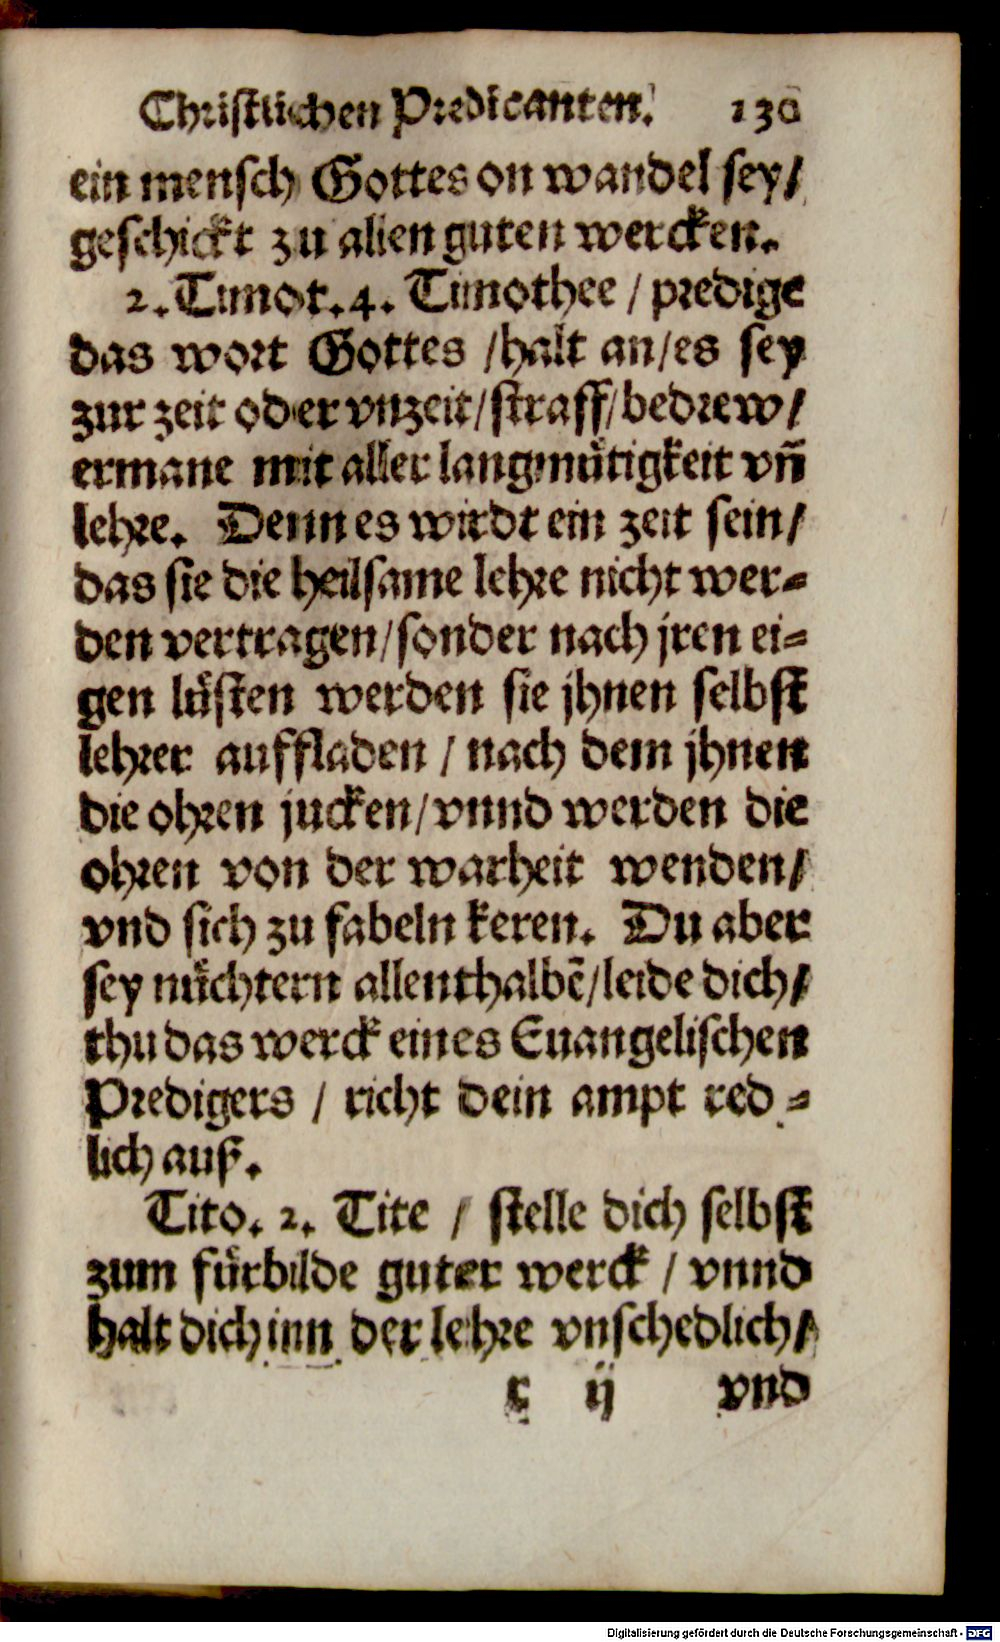 Christlichen Predicanten. 130
ein mensch Gottes on wandel sey/
geschickt zu allen guten wercken.
2. Timot. 4. Timothee / predige
das wort Gottes / halt an / es sey
zur zeit oder vnzeit / straff / bedrew /
ermane mit aller langmuͤtigkeit vñ
lehre. Denn es wirdt ein zeit sein /
das sie die heilsame lehre nicht wer⸗
den vertragen / sonder nach jren ei⸗
gen luͤsten werden sie jhnen selbst
lehrer auffladen / nach dem jhnen
die ohren jucken / vnnd werden die
ohren von der warheit wenden /
vnd sich zu fabeln keren. Du aber
sey nuͤchtern allenthalbẽ / leide dich /
thu das werck eines Euangelischen
Predigers / richt dein ampt red⸗
lich auß.
Tito. 2. Tite / stelle dich selbst
zum fuͤrbilde guter werck / vnnd
halt dich inn der lehre vnschedlich /
r ij vnd
Digitalisierung gefördert durch die Deutsche Forschungsgemeinschaft - DFG